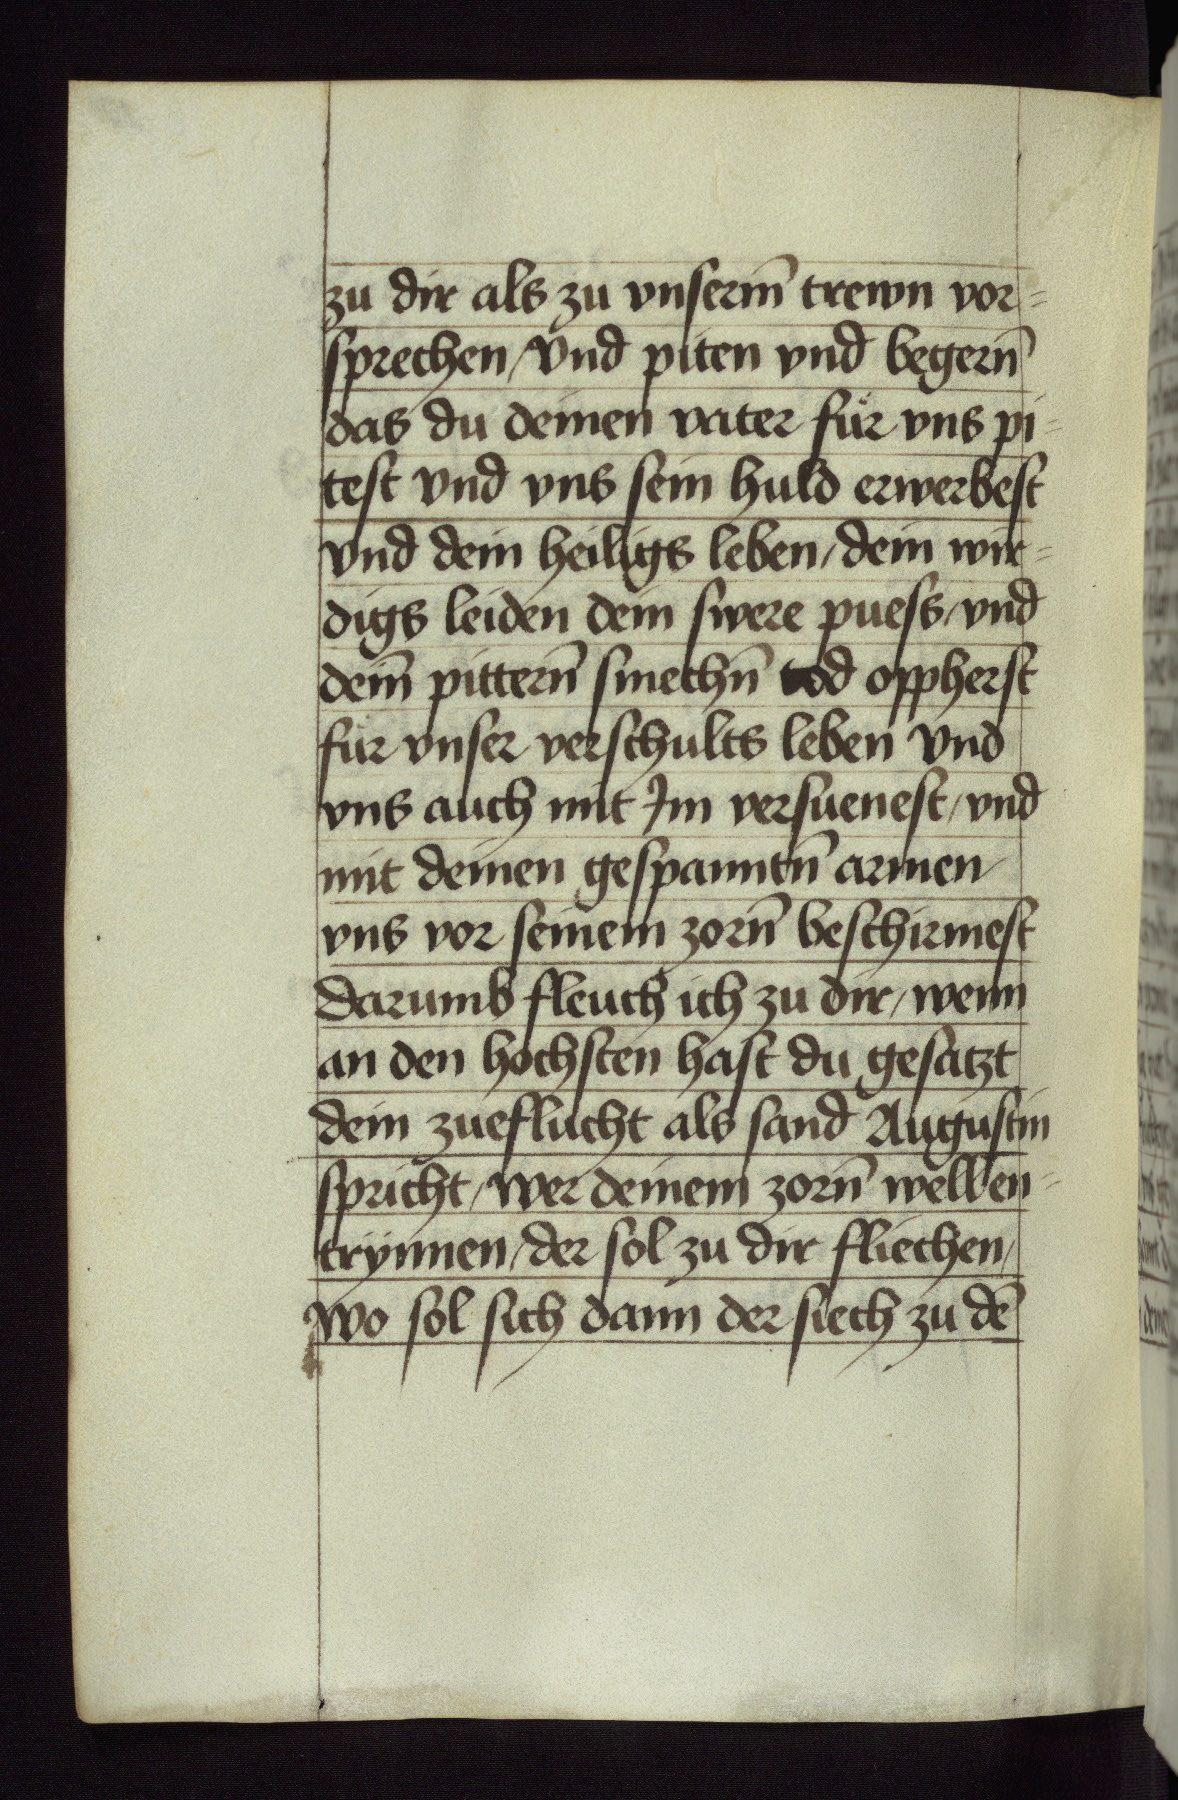 zu dir als zu vnserm̄ trewn vor=
sprechen / Vnd piten vnd begern̄
das du deinen vater für vns pi=
test Vnd vns sein huld erwerbest
Vnd dein heiligs leben / dein wir=
digs leiden dein swere puess / vnd
dein̄ pittern̄ smechn̄ tod oppherst
für vnser verschults leben Vnd
vns auch mit Im versuenest / vnd
mit deinen gespanntn̄ armen /
vns vor seinem zorn̄ beschirmest
Darumb fleuch ich zu dir / wenn
an den hochsten hast du gesatzt
dein zueflucht als sand Augustin
spricht / Wer deinem zorn̄ well en=
trynnen / der sol zu dir fliechen /
Wo sol sich dann der siech zu dē